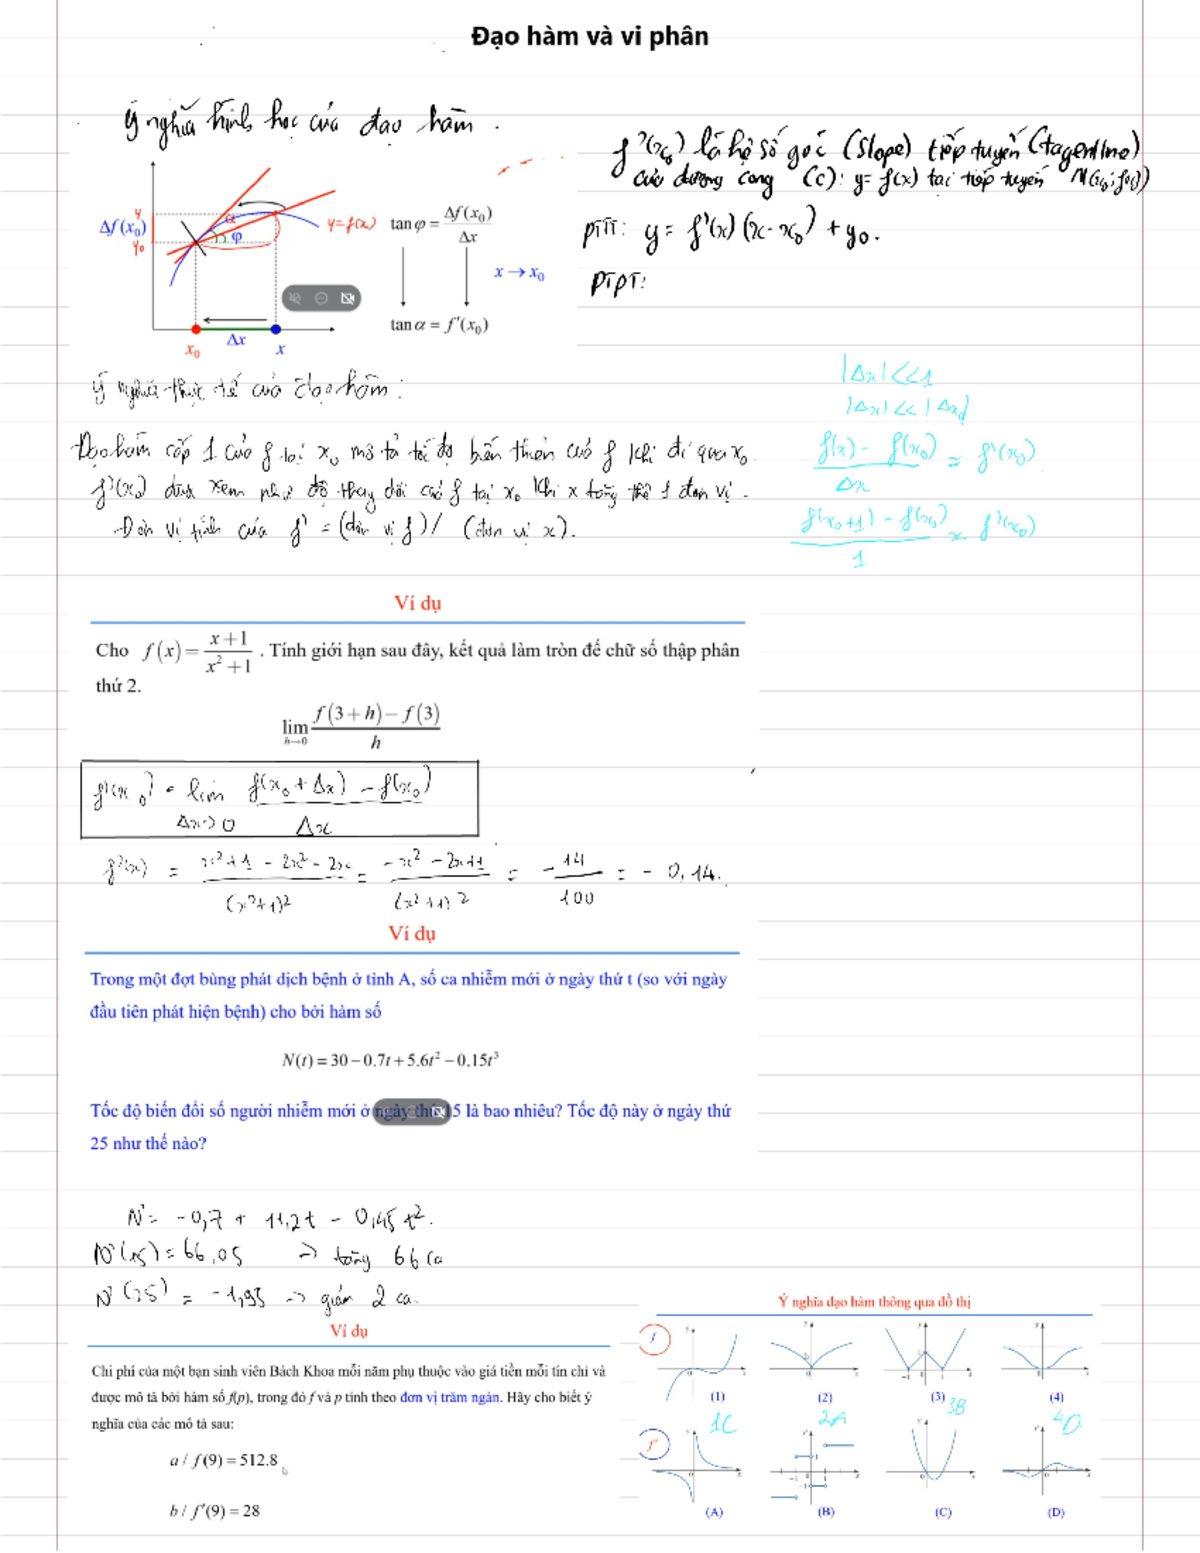 Đạo hàm và vi phân
Ý nghĩa hình học của đạo hàm.
f'(x₀) là hệ số góc (slope) tiếp tuyến (tagentline)
của đường cong (C): y = f(x) tại tiếp tuyến M(x₀; f(x₀))
PTTT: y = f'(x)(x - x₀) + y₀.
PTPT:
y
Δf(x₀)
y₀
α
φ
y=f(x)
tan φ = Δf(x₀)/Δx
x → x₀
tan α = f'(x₀)
Δx
x₀
x
Ý nghĩa thực tế của đạo hàm:
Đạo hàm cấp 1 của f tại x₀ mô tả tốc độ biến thiên của f khi đi qua x₀
f'(x₀) được xem như độ thay đổi của f tại x₀ khi x tăng thê 1 đơn vị.
Đơn vị tính của f' = (đơn vị f) / (đơn vị x).
|Δx| << 1
|Δx| << |Δx₀|
(f(x) - f(x₀))/Δx ≈ f'(x₀)
(f(x₀+1) - f(x₀))/1 ≈ f'(x₀)
Ví dụ
Cho f(x) = (x+1)/(x²+1) . Tính giới hạn sau đây, kết quả làm tròn đế chữ số thập phân
thứ 2.
lim h→0 (f(3+h) − f(3))/h
f'(x₀) = lim Δx→0 (f(x₀ + Δx) - f(x₀))/Δx
f'(x) = (x²+1 - 2x² - 2x)/(x²+1)² = (-x² - 2x+1)/(x²+1)² = -14/100 = - 0,14.
Ví dụ
Trong một đợt bùng phát dịch bệnh ở tỉnh A, số ca nhiễm mới ở ngày thứ t (so với ngày
đầu tiên phát hiện bệnh) cho bởi hàm số
N(t) = 30 − 0.7t + 5.6t² − 0.15t³
Tốc độ biến đổi số người nhiễm mới ở ngày thứ 15 là bao nhiêu? Tốc độ này ở ngày thứ
25 như thế nào?
N' = -0,7 + 11,2t - 0,45t².
N'(15) = 66,05 => tăng 66 ca
N'(25) = -1,95 => giảm 2 ca.
Ví dụ
Chi phí của một bạn sinh viên Bách Khoa mỗi năm phụ thuộc vào giá tiền mỗi tín chỉ và
được mô tả bởi hàm số f(p), trong đó f và p tính theo đơn vị trăm ngàn. Hãy cho biết ý
nghĩa của các mô tả sau:
a / f(9) = 512.8
b / f'(9) = 28
Ý nghĩa đạo hàm thông qua đồ thị
f
(1) (2) (3) (4)
1C 2A 3B 4D
f'
(A) (B) (C) (D)